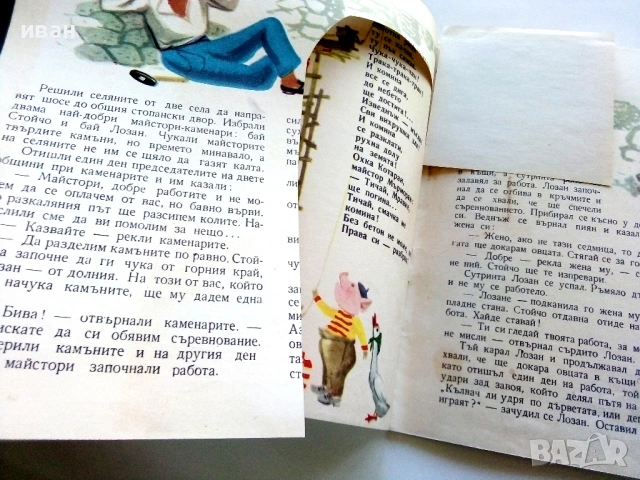 иван
Решили селяните от две села да напра-
вят шосе до общия стопански двор. Избрали
двама най-добри майстори-каменари: бай
Стойчо и бай Лозан. Чукали майсторите
твърдите камъни, но времето минавало, а
на селяните не им се щяло да газят калта.
Отишли един ден председателите на двете
общини при каменарите и им казали:
— Майстори, добре работите и не мо-
жем да се оплачем от вас, но бавно върви.
разкаляния път ще разсипем колите. На-
слили сме да ви помолим за нещо...
— Казвайте — рекли каменарите.
— Да разделим камъните по равно. Стой-
започне да ги чука от горния край,
зан — от долния. На този от вас, който
начука камъните, ще му дадем една
Бива! — отвърнали каменарите. —
искате да си обявим съревнование.
мерили камъните и на другия ден
майстори започнали работа.
Чука-чука-чук!
Трака-трака-трак!
И комина
все се дига,
до небето
ще достига!
Изведнъж
Сви вихрушка
И комина
се разклати,
рухна долу
на земята!
Охка Котаран,
майстор Мърморан:
— Тичай,
ще изгина.
Тичай, смачка ме
комина!
Без бетон не може,
Права си — разбра
в къщи, а сутринта
залавял за работа. Лозан започ-
нал да се отбива в кръчмите и
да се хвали, че ще спечели
съревнованието. Прибирал се късно у до-
ма. Веднъж се върнал пиян и казал
жена си:
— Жено, ако не тази седмица, то дру-
гата ще докарам овцата. Стягай се за го
— Добре — рекла жена му, —
не ний. Стойчо ще те изпревари.
Сутринта Лозан се успал. Ръмяло
и не му се работело.
— Лозане — подканила го жена му
пладне стана. Стойчо отдавна отиде на
бота. Хайде ставай!
— Ти си гледай твоята работа, за мо
не мисли — отвърнал сърдито Лозан.
Тъй карал Лозан и продължавал
хвали, че ще докара овцата в къщи
като отишъл един ден на работа, той
удари зад завоя, който делял пътя на
„Кълвач ли удря по дърветата, или
играят?" — зачудил се Лозан. Оставил
BAZAR
.bg